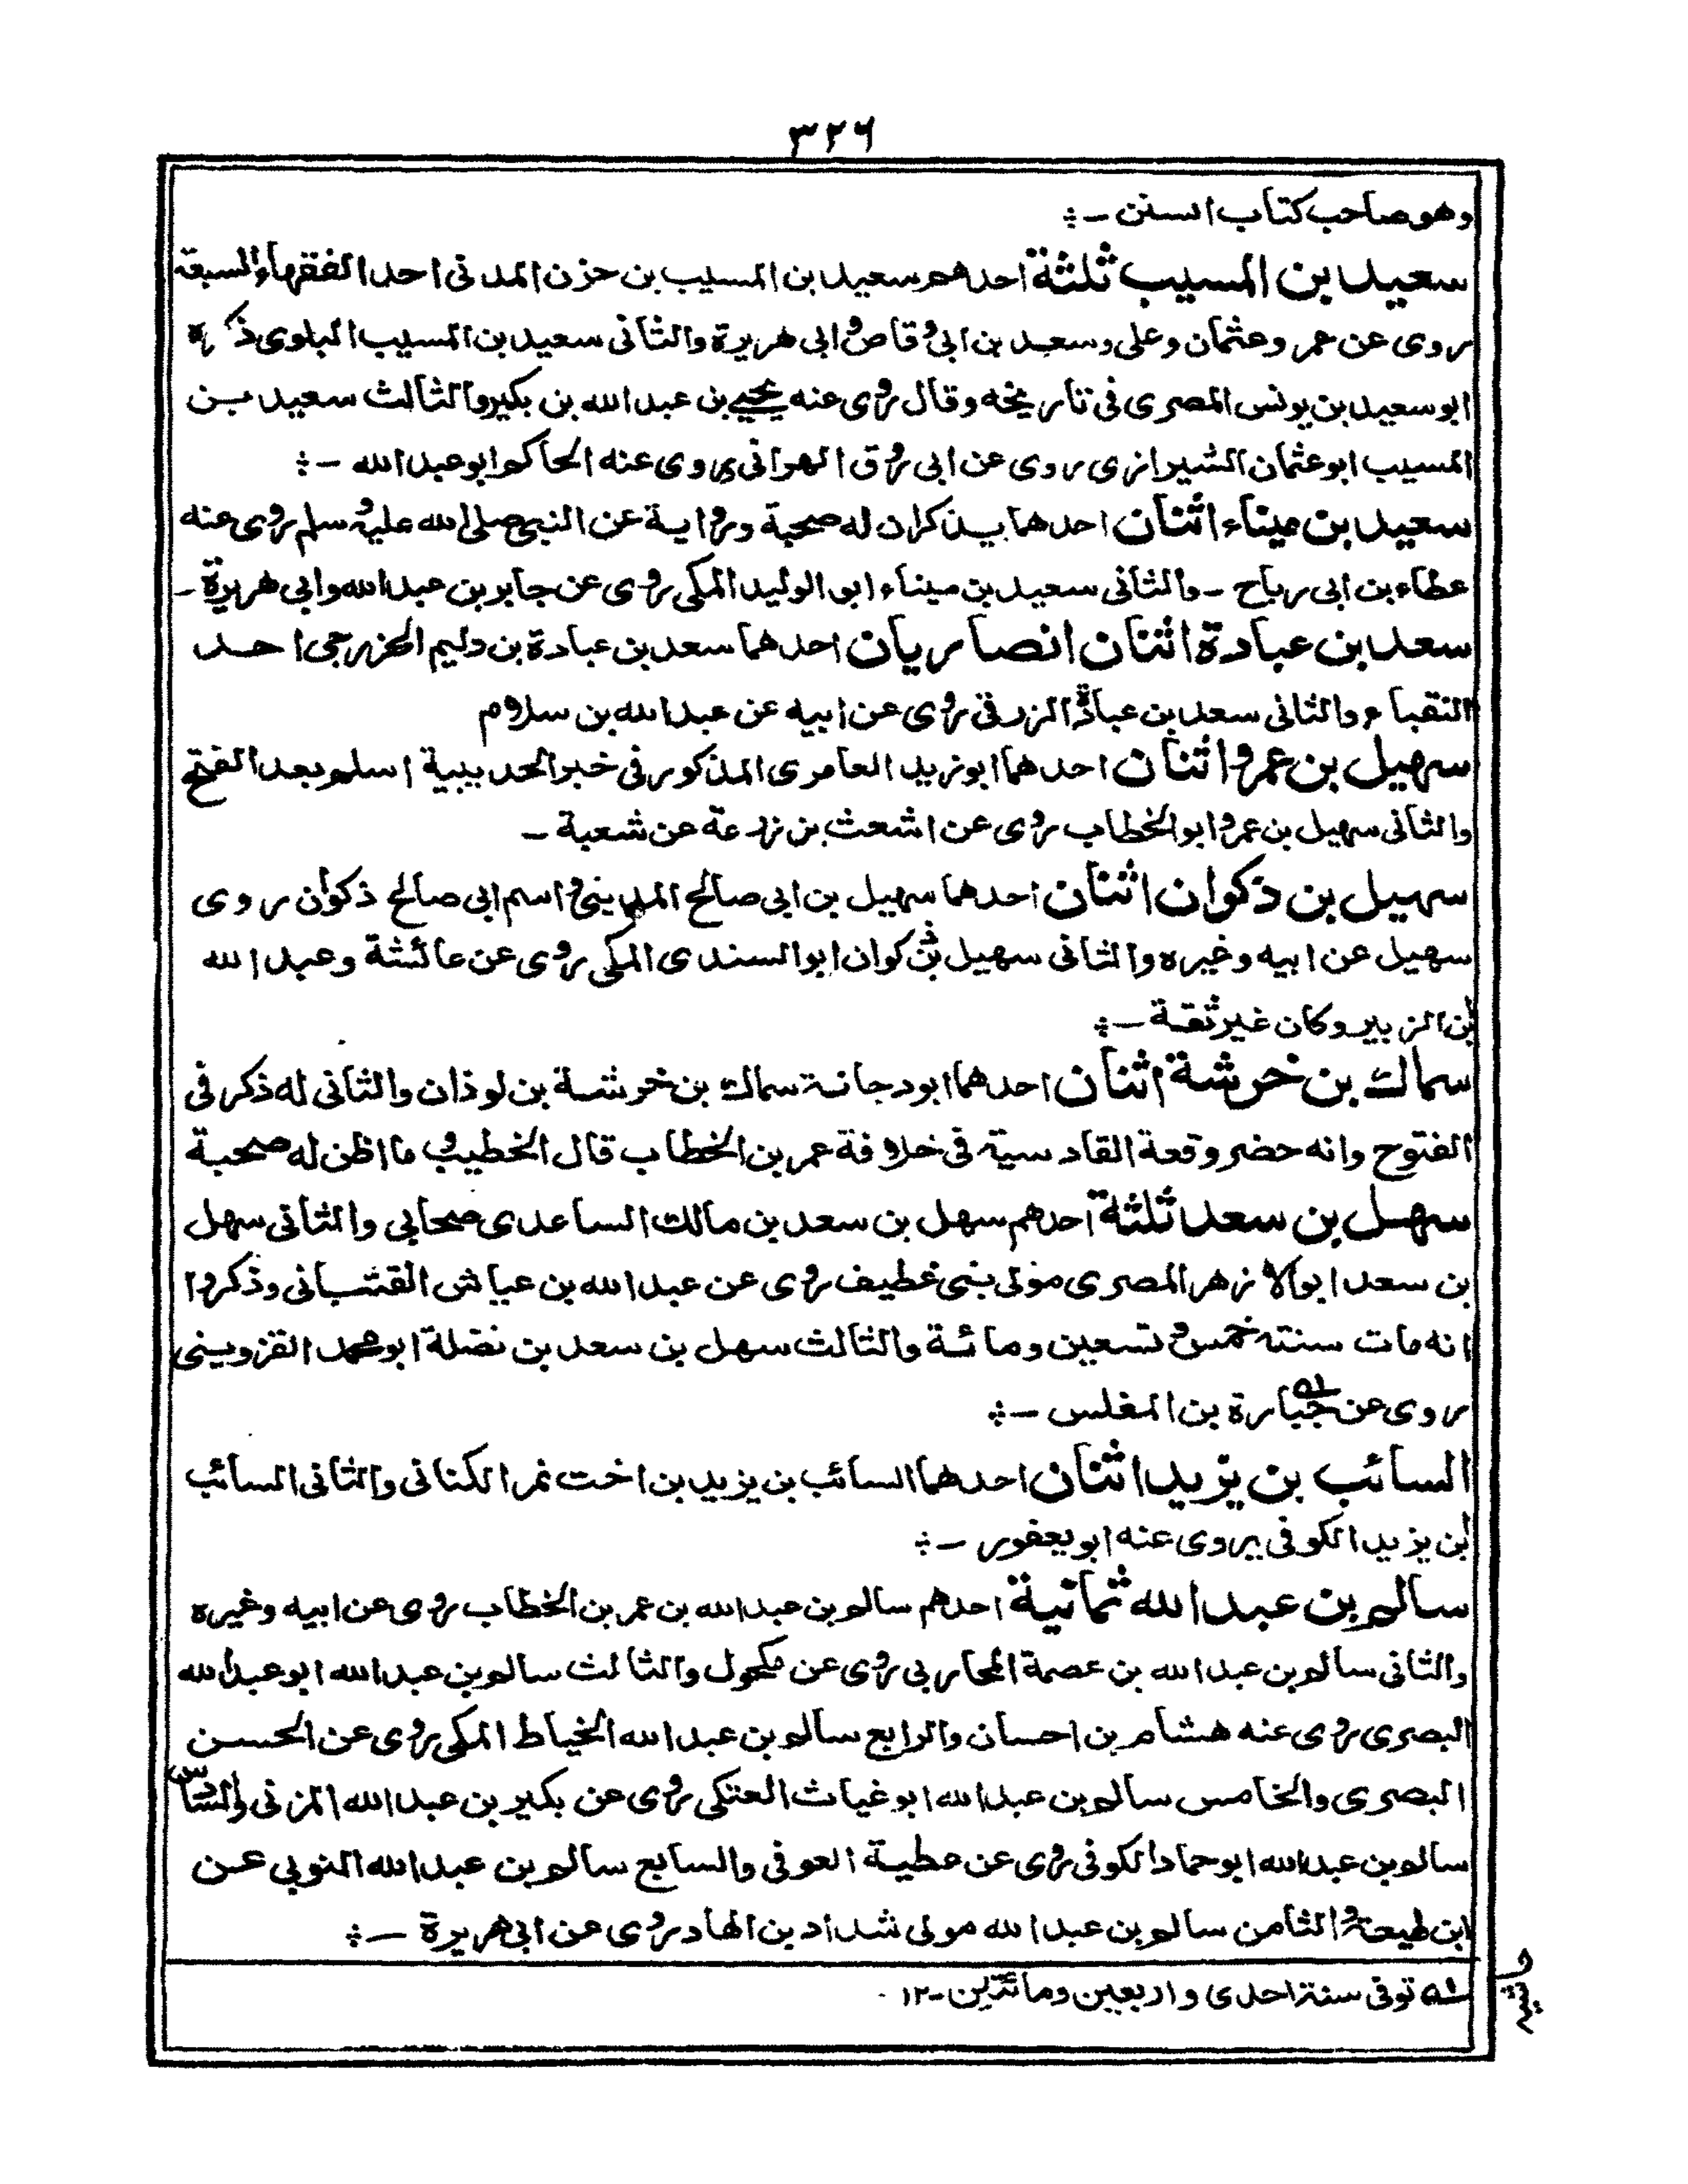 ٣٢٦
وهو صاحب كتاب السنن -
سعيد بن المسيب ثلثة احدهم سعيد بن المسيب بن حزن المدنى احد الفقهاء السبعة
روى عن عمر وعثمان وعلى وسعد بن ابى وقاص وابى هريرة والثانى سعيد بن المسيب البلوى ذكره
ابو سعيد بن يونس المصرى فى تاريخه وقال روى عنه يحيى بن عبد الله بن بكير والثالث سعيد بن
المسيب ابو عثمان الشيرازى روى عن ابى روق الهزانى روى عنه الحاكم ابو عبد الله -
سعيد بن ميناء اثنان احدهما يذكر ان له صحبة ورواية عن النبى صلى الله عليه وسلم روى عنه
عطاء بن ابى رباح - والثانى سعيد بن ميناء ابو الوليد المكى روى عن جابر بن عبد الله وابى هريرة -
سعد بن عبادة اثنان انصاريان احدهما سعد بن عبادة بن دليم الخزرجى احد
النقباء والثانى سعد بن عبادة الزرقى روى عن ابيه عن عبد الله بن سلام
سهيل بن عمرو اثنان احدهما ابو زيد العامرى المذكور فى خبر الحديبية اسلم بعد الفتح
والثانى سهيل بن عمرو ابو الخطاب روى عن اشعث بن زرعة عن شعبة -
سهيل بن ذكوان اثنان احدهما سهيل بن ابى صالح المدينى واسم ابى صالح ذكوان روى
سهيل عن ابيه وغيره والثانى سهيل بن ذكوان ابو السندى المكى روى عن عائشة وعبد الله
بن الزبير وكان غير ثقة -
سماك بن خرشة اثنان احدهما ابو دجانة سماك بن خرشة بن لوذان والثانى له ذكر فى
الفتوح وانه حضر وقعة القادسية فى خلافة عمر بن الخطاب قال الخطيب وما اظن له صحبة
سهل بن سعد ثلثة احدهم سهل بن سعد بن مالك الساعدى صحابى والثانى سهل
بن سعد ابو الازهر المصرى مولى بنى غطيف روى عن عبد الله بن عياش القتبانى وذكروا
انه مات سنته خمس وتسعين ومائة والثالث سهل بن سعد بن نضلة ابو محمد القزوينى
روى عن جبارة بن المغلس -
السائب بن يزيد اثنان احدهما السائب بن يزيد بن اخت نمر الكنانى والثانى السائب
بن يزيد الكوفى يروى عنه ابو يعفور -
سالم بن عبد الله ثمانية احدهم سالم بن عبد الله بن عمر بن الخطاب روى عن ابيه وغيره
والثانى سالم بن عبد الله بن عصمة المحاربى روى عن مكحول والثالث سالم بن عبد الله ابو عبد الله
البصرى روى عنه هشام بن احسان والرابع سالم بن عبد الله الخياط المكى روى عن الحسن
البصرى والخامس سالم بن عبد الله ابو غياث العتكى روى عن بكير بن عبد الله المزنى والسادس
سالم بن عبد الله ابو حماد الكوفى روى عن عطية العوفى والسابع سالم بن عبد الله النوبى عن
ابن لهيعة والثامن سالم بن عبد الله مولى شداد بن الهاد روى عن ابى هريرة -
له توفى سنة احدى واربعين ومائتين - ١٢